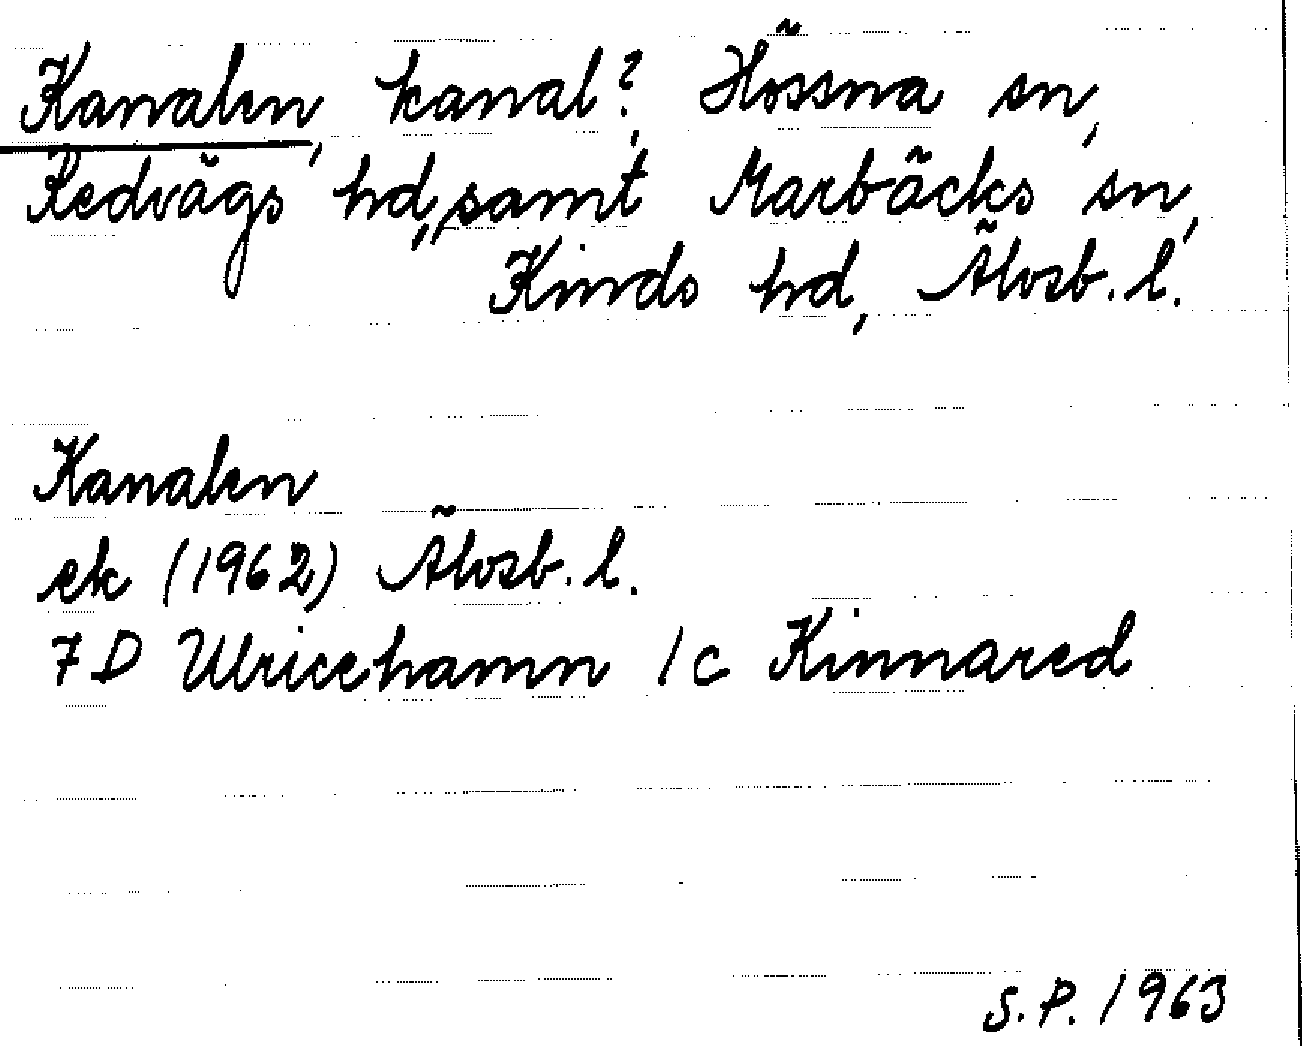 Kanalen, kanal?, Hössna sn,
Redvägs hd, samt Marbäcks sn,
Kinds hd, Älvsb. l.
Kanalen
ek (1962) Älvsb. l.
7 D Ulricehamn 1 c Kinnared
S. P. 1963